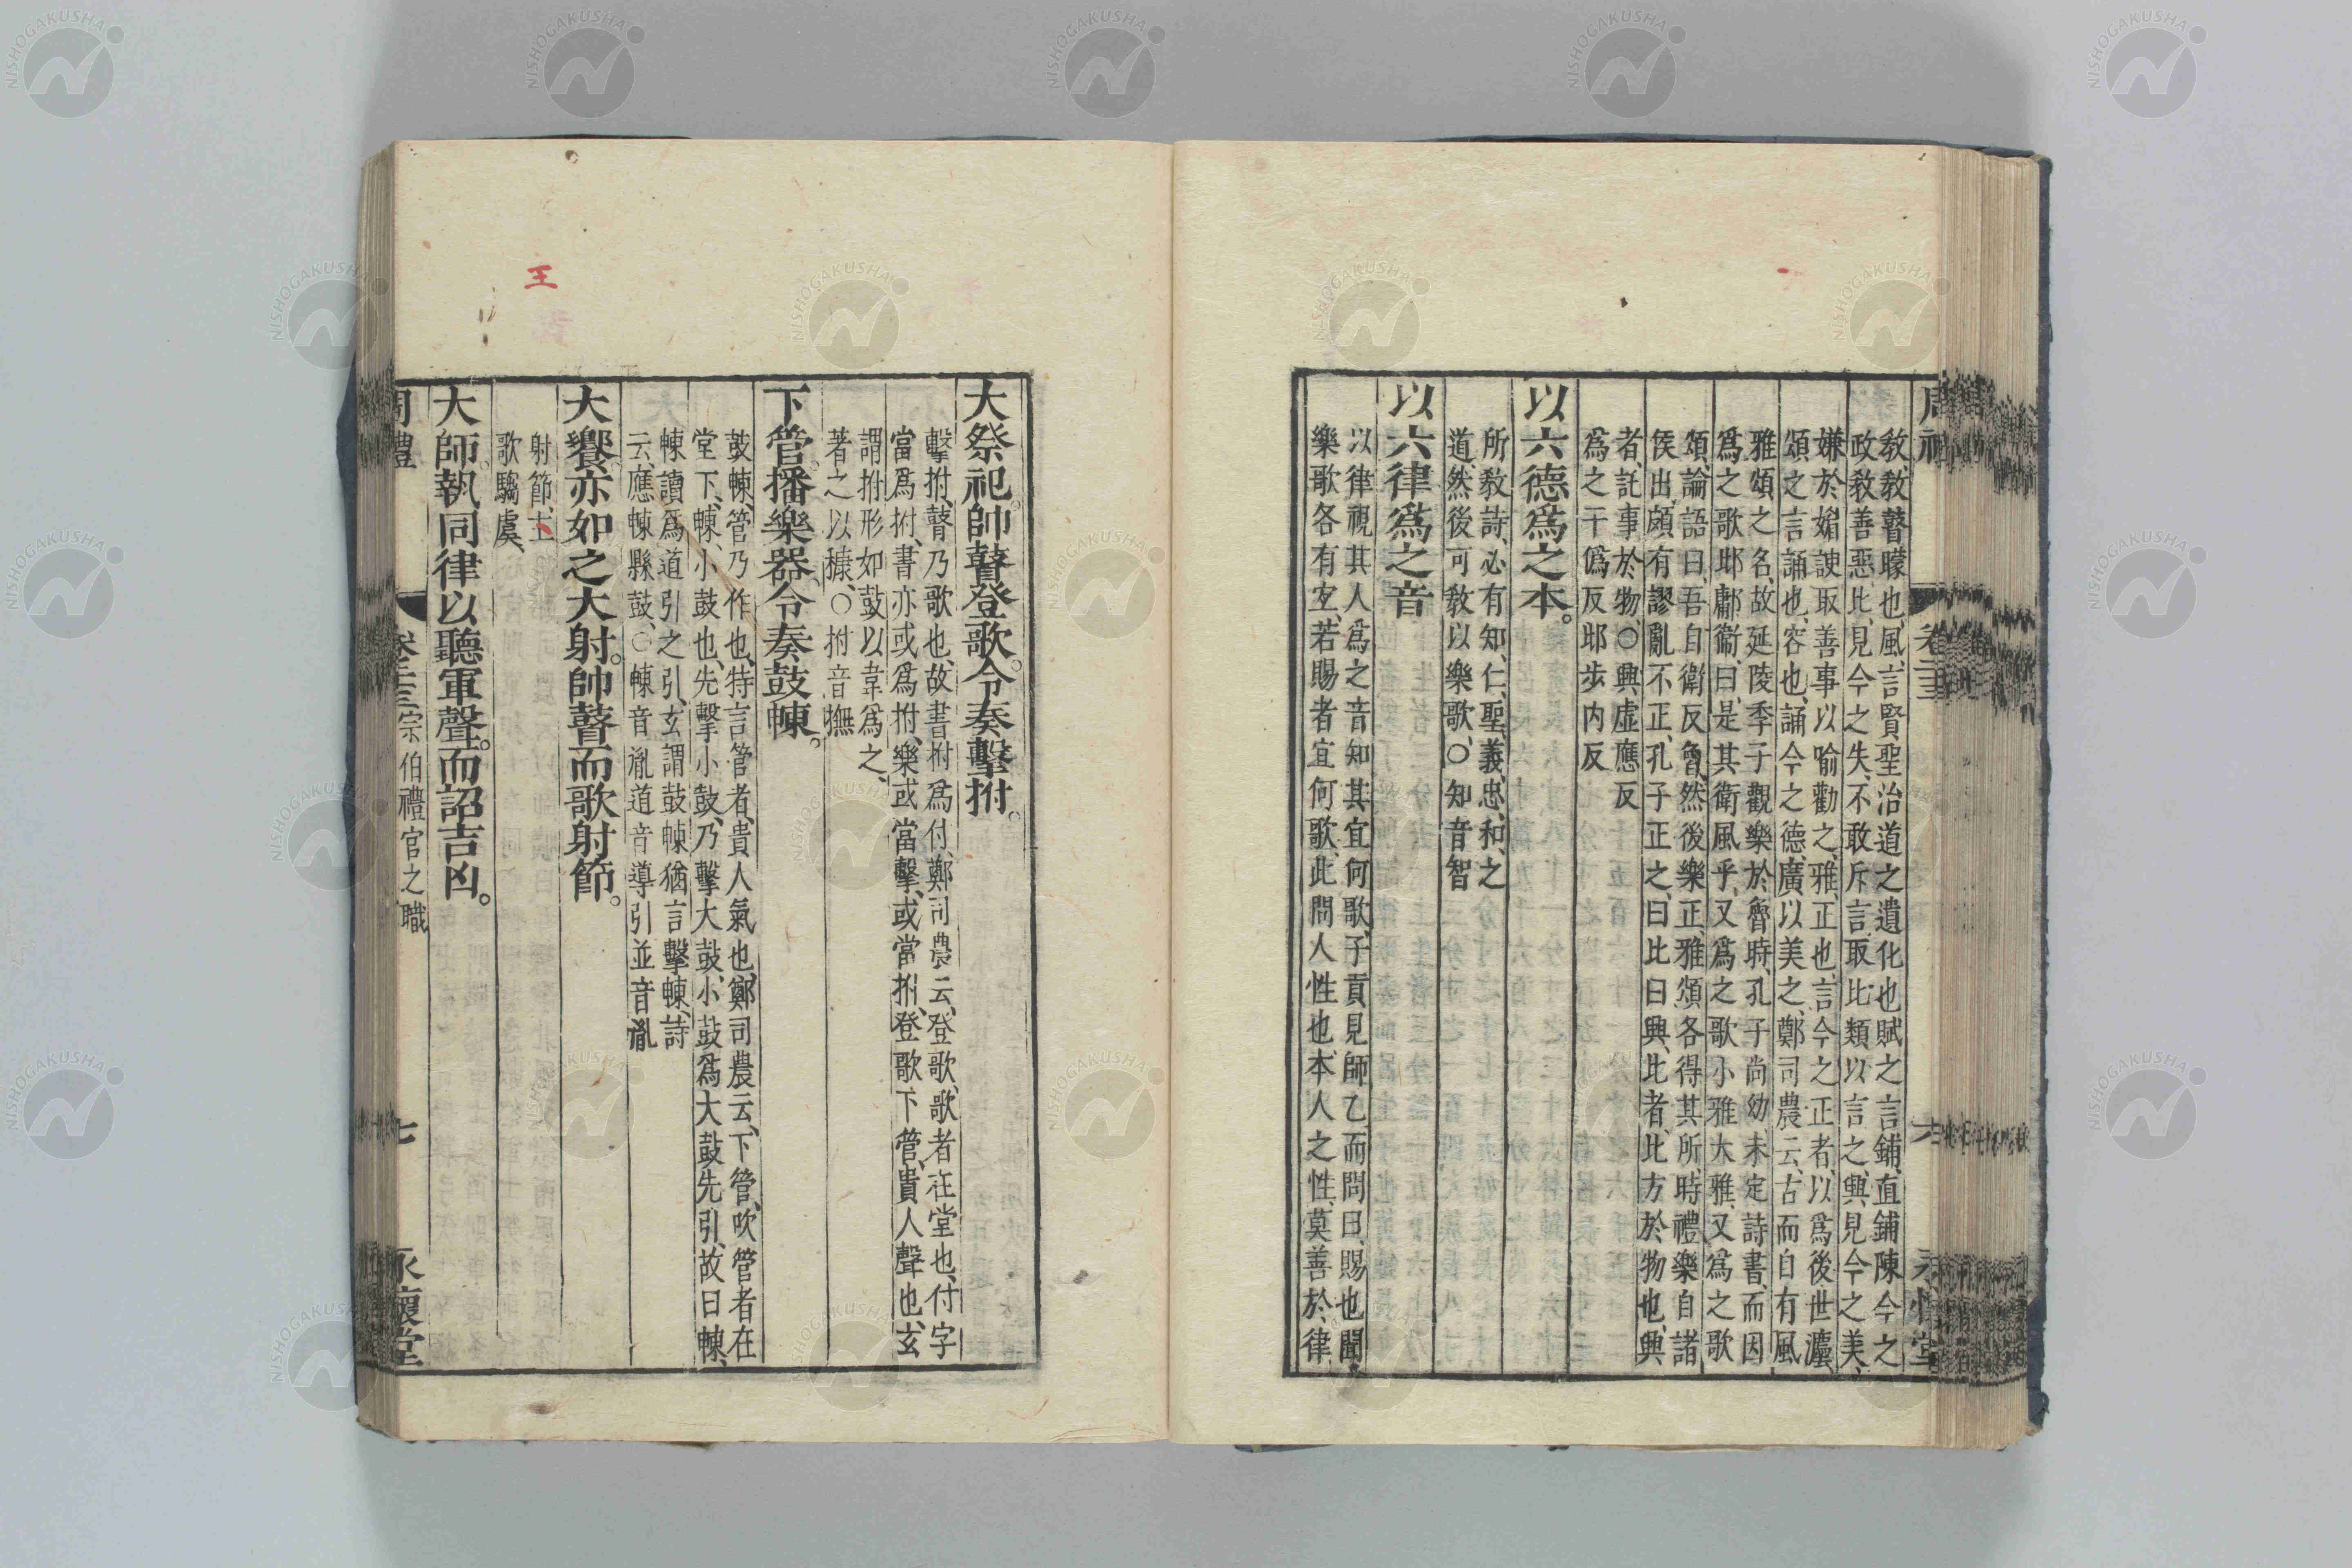 教、教瞽矇也、風、言賢聖治道之遺化也賦之言鋪、直鋪陳今之
政敎善惡、比、見今之失、不敢斥言、取比類、以言之、興、見今之美、
嫌於媚諛取善事以喻勸之、雅、正也、言今之正者、以爲後世灋、
頌之言誦也、容也、誦今之德、廣以美之、鄭司農云、古而自有風
雅頌之名、故延陵季子觀樂於魯時、孔子尚幼未定詩書、而因
爲之歌邶鄘衞、曰、是其衛風乎、又爲之歌小雅大雅、又爲之歌
頌、論語曰、吾自衛反魯、然後樂正、雅頌各得其所、時禮樂自諸
侯出、頗有謬亂不正、孔子正之、曰比曰興、比者、比方於物也、興
者、託事於物、○興虛應反
爲之于僞反邶步内反
以六德爲之本。
所敎詩、必有知、仁、聖、義、忠、和、之
道、然後可敎以樂歌、○知音智
以六律爲之音
以律視其人爲之音知其宜何歌、子貢見師乙而問曰、賜也聞
樂歌各有宜、若賜者宜何歌、此問人性也、本人之性、莫善於律、
周禮 卷二十三 六 永懷堂
大祭祀。帥瞽登歌。令奏擊拊。
擊拊、瞽乃歌也、故書拊爲付、鄭司農云、登歌、歌者在堂也、付字
當爲拊、書亦或爲拊、樂或當擊、或當拊、登歌下管、貴人聲也、玄
謂拊形如鼓以韋爲之、
著之以穅、○拊音撫
下管。播樂器。令奏鼓朄。
鼓朄、管乃作也、特言管者、貴人氣也鄭司農云、下管、吹管者在
堂下、朄、小鼓也、先擊小鼓、乃擊大鼓、小鼓爲大鼓先引、故曰朄、
朄讀爲道引之引、玄謂鼓朄猶言擊朄、詩
云、應朄縣鼓、○朄音胤道音導引並音胤
大饗。亦如之大射。帥瞽而歌射節。
王
射節、王
歌騶虞、
大師。執同律以聽軍聲。而詔吉凶。
周禮 卷二十三 宗伯禮官之職 七 永懷堂